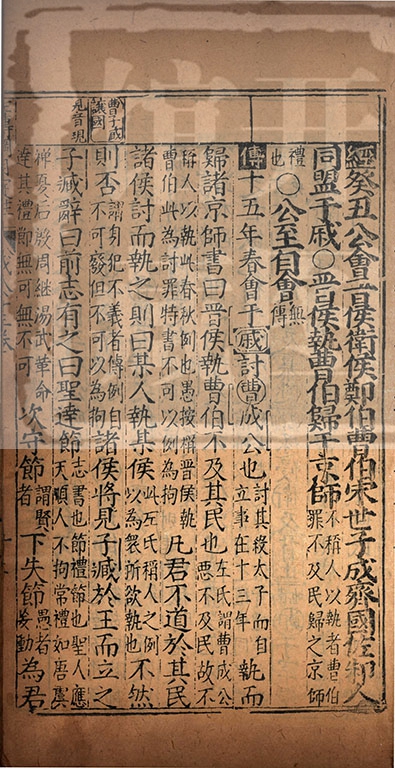 經癸丑公會晉侯衛侯鄭伯曹伯宋世子成齊國佐邾人
同盟于戚〇晉侯執曹伯歸于京師不稱人以執者曹伯罪不及民歸之京師
禮也〇公至自會無傳
傳十五年春會于戚討曹成公也討其殺太子而自立事在十三年執而
歸諸京師書曰晉侯執曹伯不及其民也左氏謂曹成公惡不及民故不
稱人以執此春秋例也愚按稱晉侯執曹伯此為討罪特書不可以例為拘凡君不道於其民
諸侯討而執之則曰某人執某侯此左氏稱人之例以為衆所欲執也不然
曹子臧讓國
則否謂身犯不義者傳例自不可發但不可以為拘諸侯將見子臧於王而立之
見音現
子臧辭曰前志有之曰聖達節志書也節禮節也聖人應天順人不拘常禮如唐虞
禪夏后殷周繼湯武革命達其禮節無可無不可次守節謂賢者下失節愚者妄動為君